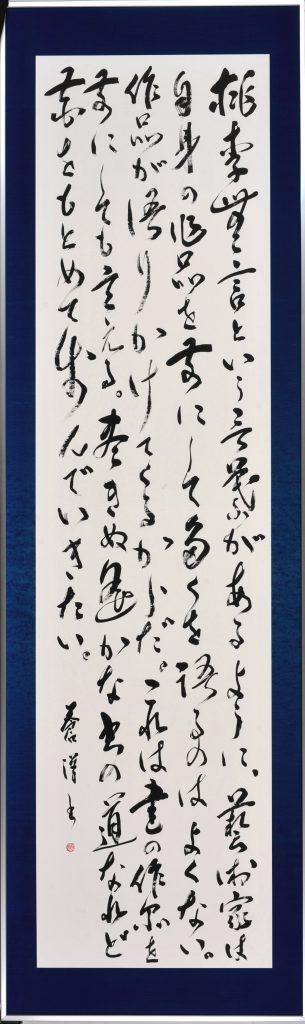 桃李無言という言葉があるように、藝術家は
自身の作品を前にして多くを語るのはよくない。
作品が語りかけてくるからだ。これは書の作家を
前にしても言える。尽きぬ遥かな書の道なれど
夢をもとめて歩んでいきたい。
蒼洋書